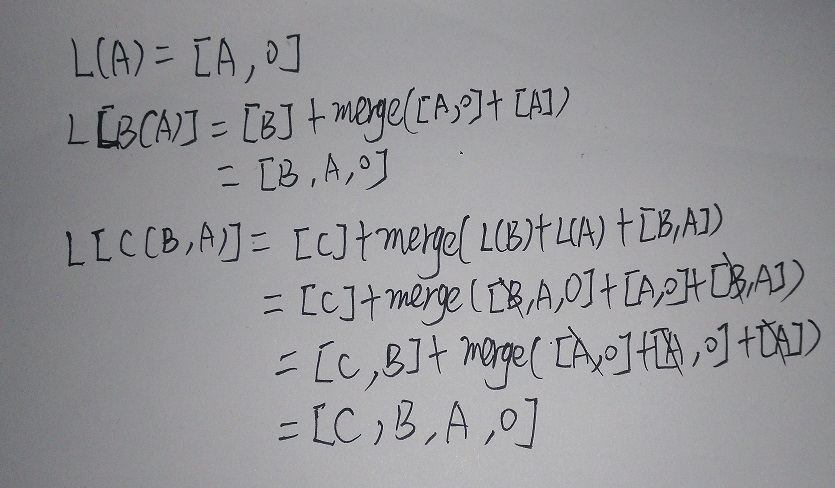 L(A) = [A, 0]
L[B(A)] = [B] + merge([A,0] + [A])
= [B, A, 0]
L[C(B,A)] = [C] + merge(L(B) + L(A) + [B,A])
= [C] + merge([B,A,0] + [A,0] + [B,A])
= [C,B] + merge([A,0] + [A,0] + [A])
= [C, B, A, 0]